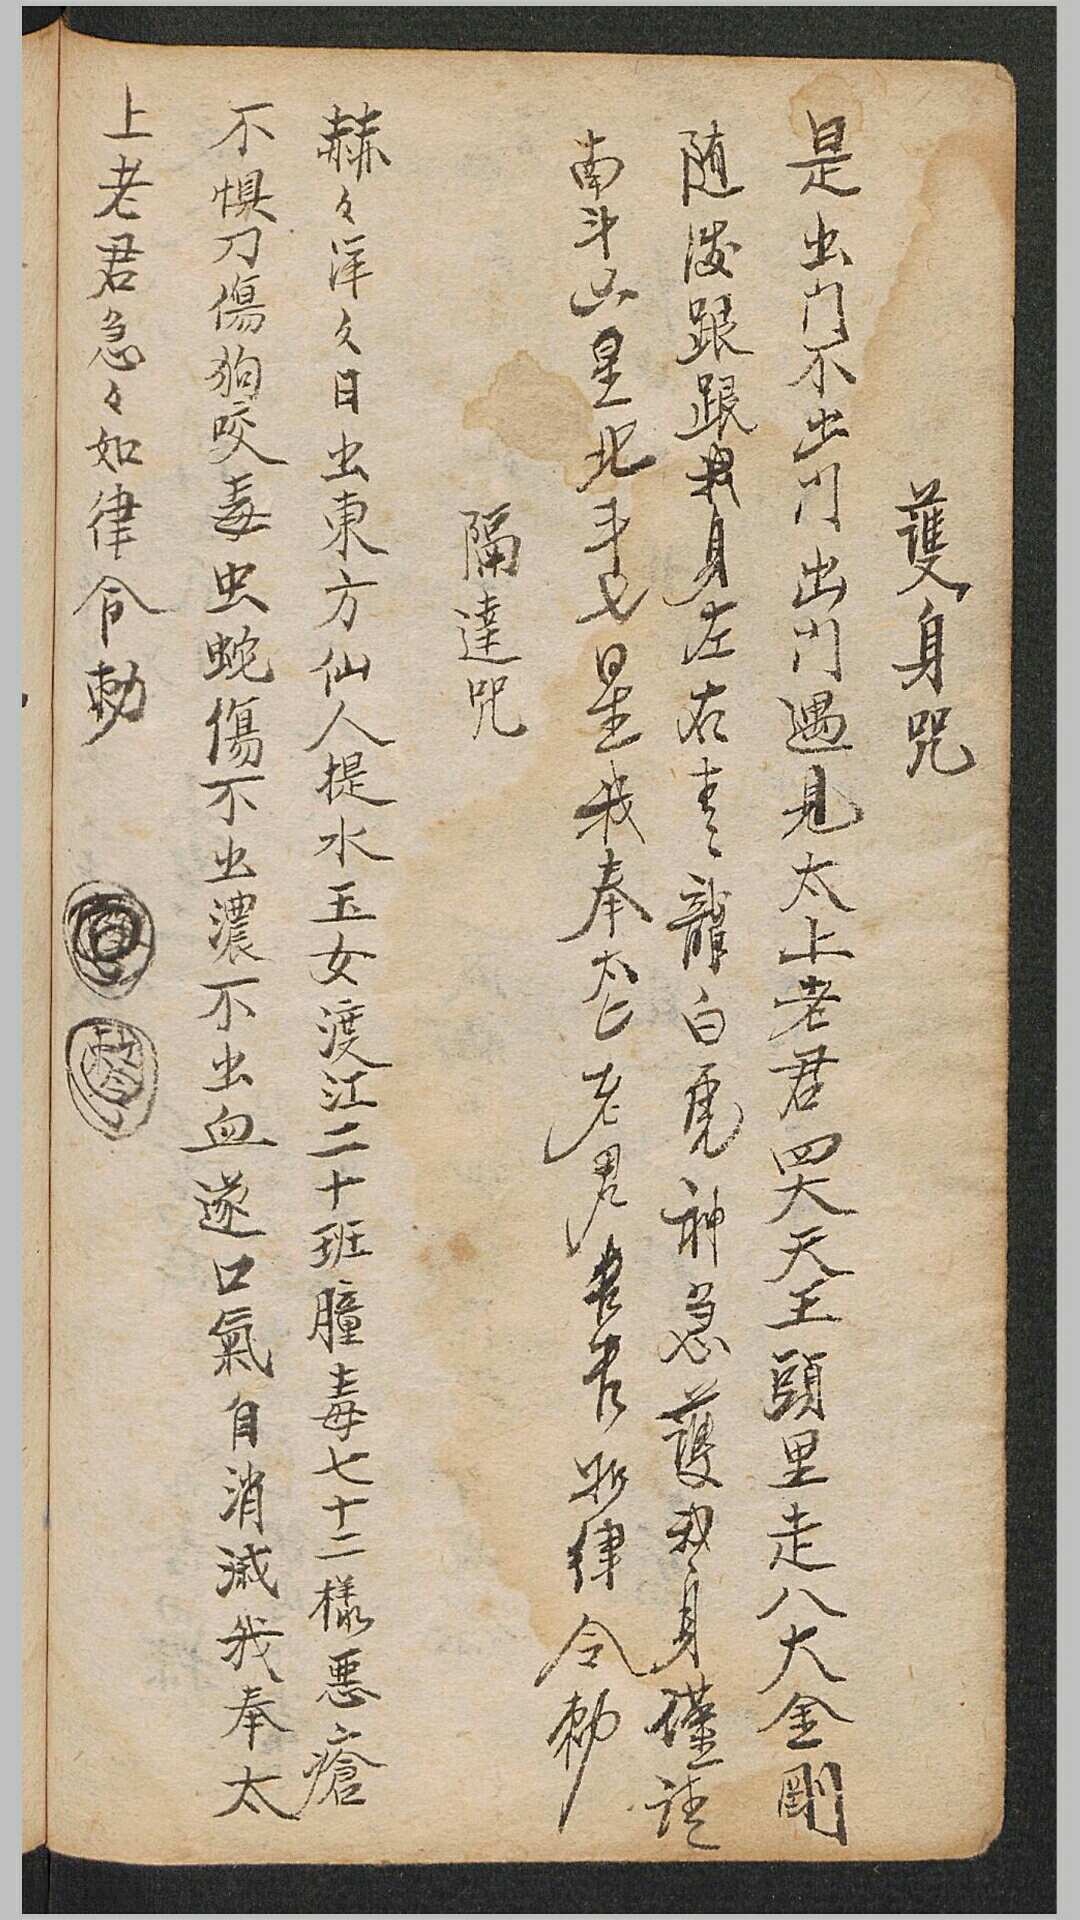 護身咒
是出門不出門出門遇見太上老君四大天王頭里走八大金剛
随後跟跟我身左右青龍白虎神急護我身謹請
南斗六星北斗七星我奉太上老君急急如律令勅
隔達咒
赫々洋々日出東方仙人提水玉女渡江二十班朣毒七十二樣惡瘡
不惧刀傷狗咬毒虫蛇傷不出濃不出血遂口氣自消滅我奉太
上老君急々如律令勅